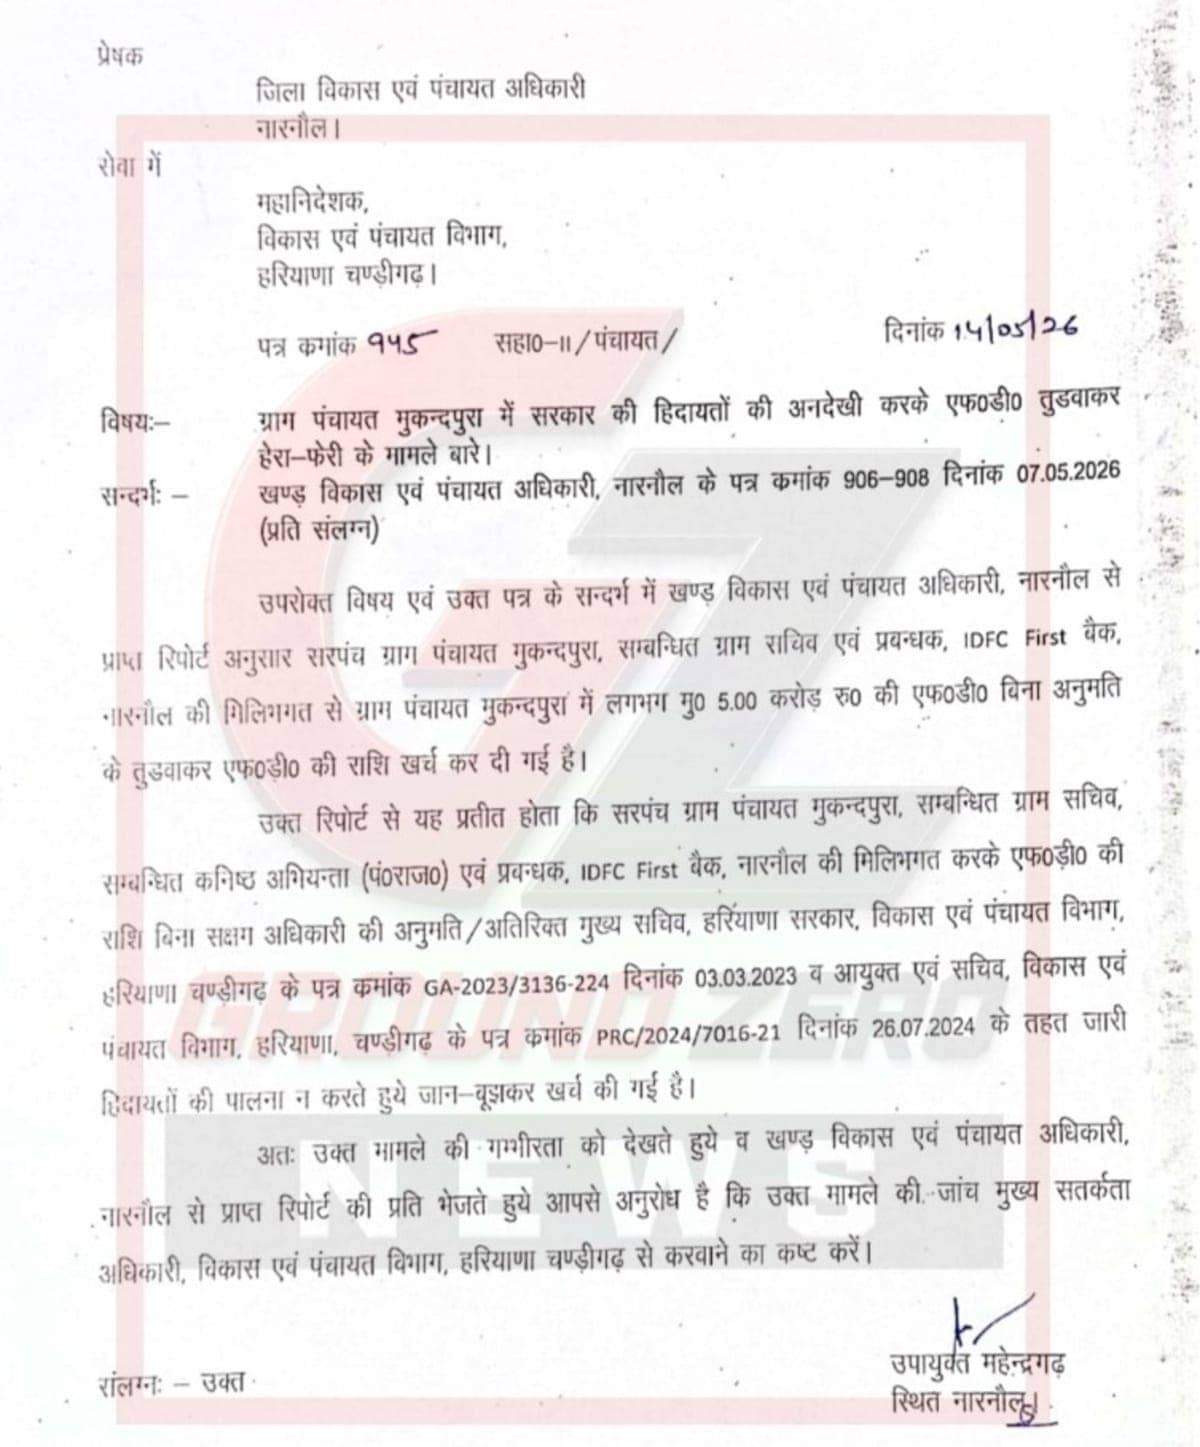 प्रेषक
जिला विकास एवं पंचायत अधिकारी
नारनौल।
सेवा में
महानिदेशक,
विकास एवं पंचायत विभाग,
हरियाणा चण्डीगढ़।
पत्र कमांक ९४५ सहा0-II/पंचायत/ दिनांक 14/05/26
विषयः– ग्राम पंचायत मुकन्दपुरा में सरकार की हिदायतों की अनदेखी करके एफ0डी0 तुडवाकर
हेरा–फेरी के मामले बारे।
सन्दर्भः – खण्ड विकास एवं पंचायत अधिकारी, नारनौल के पत्र कमांक 906–908 दिनांक 07.05.2026
(प्रति संलग्न)
उपरोक्त विषय एवं उक्त पत्र के सन्दर्भ में खण्ड विकास एवं पंचायत अधिकारी, नारनौल से
प्राप्त रिपोर्ट अनुसार सरपंच ग्राम पंचायत मुकन्दपुरा, सम्बन्धित ग्राम सचिव एवं प्रबन्धक, IDFC First बैक,
नारनौल की मिलिभगत से ग्राम पंचायत मुकन्दपुरा में लगभग मु0 5.00 करोड़ रु0 की एफ0डी0 बिना अनुमति
के तुडवाकर एफ0ड़ी0 की राशि खर्च कर दी गई है।
उक्त रिपोर्ट से यह प्रतीत होता कि सरपंच ग्राम पंचायत मुकन्दपुरा, सम्बन्धित ग्राम सचिव,
सम्बन्धित कनिष्ठ अभियन्ता (पं0राज0) एवं प्रबन्धक, IDFC First बैक, नारनौल की मिलिभगत करके एफ0ड़ी0 की
राशि बिना सक्षम अधिकारी की अनुमति/अतिरिक्त मुख्य सचिव, हरियाणा सरकार, विकास एवं पंचायत विभाग,
हरियाणा चण्डीगढ़ के पत्र कमांक GA-2023/3136-224 दिनांक 03.03.2023 व आयुक्त एवं सचिव, विकास एवं
पंचायत विभाग, हरियाणा, चण्डीगढ़ के पत्र कमांक PRC/2024/7016-21 दिनांक 26.07.2024 के तहत जारी
हिदायतों की पालना न करते हुये जान–बूझकर खर्च की गई है।
अतः उक्त मामले की गम्भीरता को देखते हुये व खण्ड़ विकास एवं पंचायत अधिकारी,
नारनौल से प्राप्त रिपोर्ट की प्रति भेजते हुये आपसे अनुरोध है कि उक्त मामले की जांच मुख्य सतर्कता
अधिकारी, विकास एवं पंचायत विभाग, हरियाणा चण्डीगढ़ से करवाने का कष्ट करें।
उपायुक्त महेन्द्रगढ़
संलग्नः – उक्त
स्थित नारनौल।
GZ
GROUND ZERO
NEWS